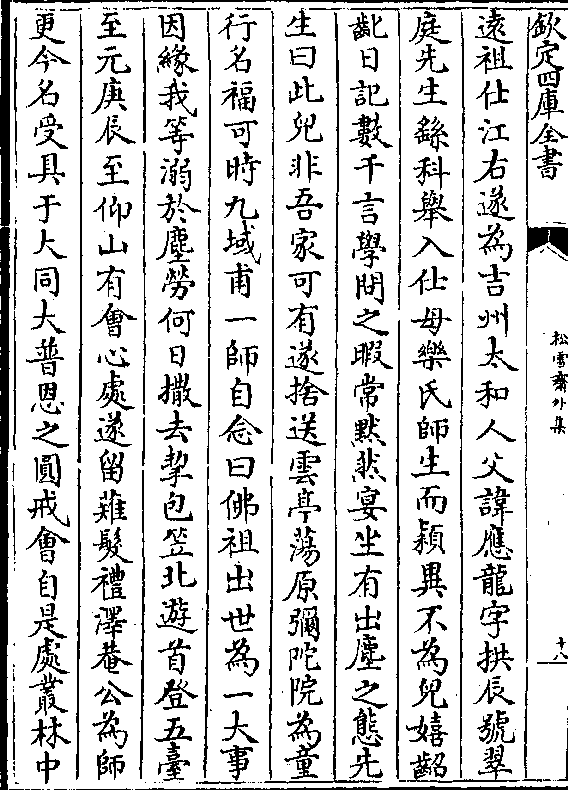 欽定四庫全書
松雪齋外集
十八
遠祖仕江右遂為吉州太和人父諱應龍字拱辰號翠
庭先生繇科舉入仕母樂氏師生而穎異不為兒嬉齠
齔日記數千言學問之暇常默然宴坐有出塵之態先
生曰此兒非吾家可有遂捨送雲亭蕩原彌陀院為童
行名福可時九域甫一師自念曰佛祖出世為一大事
因緣我等溺於塵勞何日撒去挈包笠北遊首登五臺
至元庚辰至仰山有會心處遂留薙髮禮澤菴公為師
更今名受具于大同大普恩之圓戒會自是處叢林中